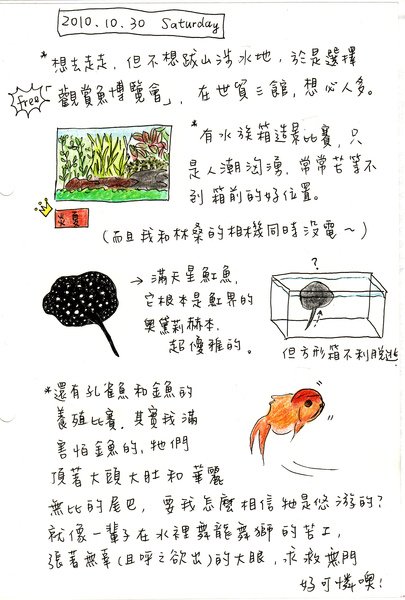 2010.10.30 Saturday
*想去走走，但不想跋山涉水地，於是選擇
free
「觀賞魚博覽會」，在世貿三館，想必人多。
*有水族箱造景比賽，只
是人潮洶湧，常常苦等不
到箱前的好位置。
(而且我和林桑的相機同時沒電～)
→滿天星魟魚，
它根本是魟界的
奧黛莉赫本，
超優雅的。
?
但方形箱不利脫逃
*還有孔雀魚和金魚的
養殖比賽，其實我滿
害怕金魚的，牠們
頂著大頭大肚和華麗
無比的尾巴，要我怎麼相信牠是悠游的?
就像一輩子在水裡舞龍舞獅的苦工，
張著無辜(且呼之欲出)的大眼，求救無門
好可憐噢!